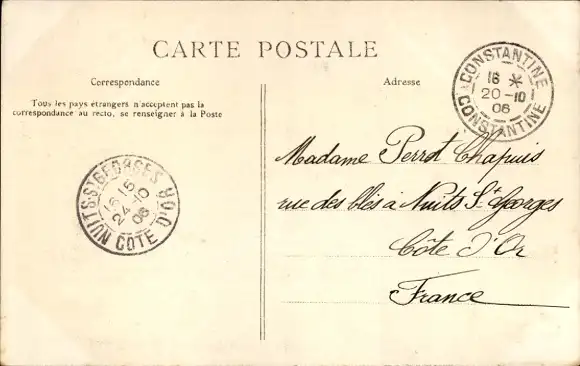 CARTE POSTALE
Correspondance
Tous les pays étrangers n'acceptent pas la
correspondance au recto, se renseigner à la Poste
Adresse
CONSTANTINE
18 *
20 -10
06
CONSTANTINE
NUITS-ST-GEORGES
15 15
24 -10
06
COTE D'OR
Madame Perrot Chapuis
rue des blés à Nuits St Georges
Côte d'Or
France